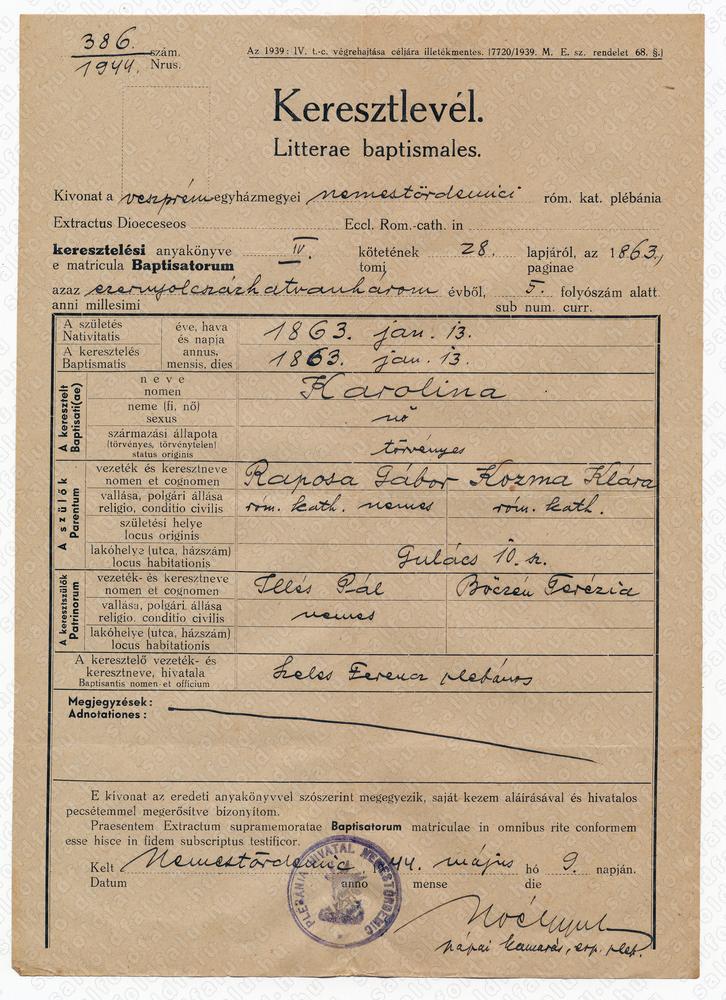 386. szám.
1944. Nrus.
Az 1939: IV. t.-c. végrehajtása céljára illetékmentes. (7720/1939. M. E. sz. rendelet 68. §.)
Keresztlevél.
Litterae baptismales.
Kivonat a veszprém egyházmegyei nemestördemici róm. kat. plébánia
Extractus Dioeceseos Eccl. Rom.-cath. in
keresztelési anyakönyve IV. kötetének 28. lapjáról, az 1863.,
e matricula Baptisatorum tomi paginae
azaz ezernyolcszázhatvanhárom évből, 5. folyószám alatt
anni millesimi sub num. curr.
A születés éve, hava 1863. jan. 13.
Nativitatis és napja
A keresztelés annus, 1863. jan. 13.
Baptismatis mensis, dies
A keresztelt
Baptisati(ae)
neve Karolina
nomen
neme (fi, nő) nő
sexus
származási állapota
(törvényes, törvénytelen) törvényes
status originis
A szülők
Parentum
vezeték és keresztneve Raposa Gábor Kozma Klára
nomen et cognomen
vallása, polgári állása róm. kath. nemes róm. kath.
religio, conditio civilis
születési helye
locus originis
lakóhelye (utca, házszám) Gulács 10. sz.
locus habitationis
A keresztszülők
Patrinorum
vezeték- és keresztneve Illés Pál Böczén Terézia
nomen et cognomen
vallása, polgári állása nemes
religio. conditio civilis
lakóhelye (utca, házszám)
locus habitationis
A keresztelő vezeték- és
keresztneve, hivatala Szeles Ferenc plebános
Baptisantis nomen et officium
Megjegyzések:
Adnotationes:
E kivonat az eredeti anyakönyvvel szószerint megegyezik, saját kezem aláírásával és hivatalos
pecsétemmel megerősítve bizonyítom.
Praesentem Extractum supramemoratae Baptisatorum matriculae in omnibus rite conformem
esse hisce in fidem subscriptus testificor.
Kelt Nemestördemic 1944. május hó 9. napján.
Datum anno mense die
PLÉBÁNIA HIVATAL NEMESTÖRDEMIC
pápai kamarás, esp. pleb.